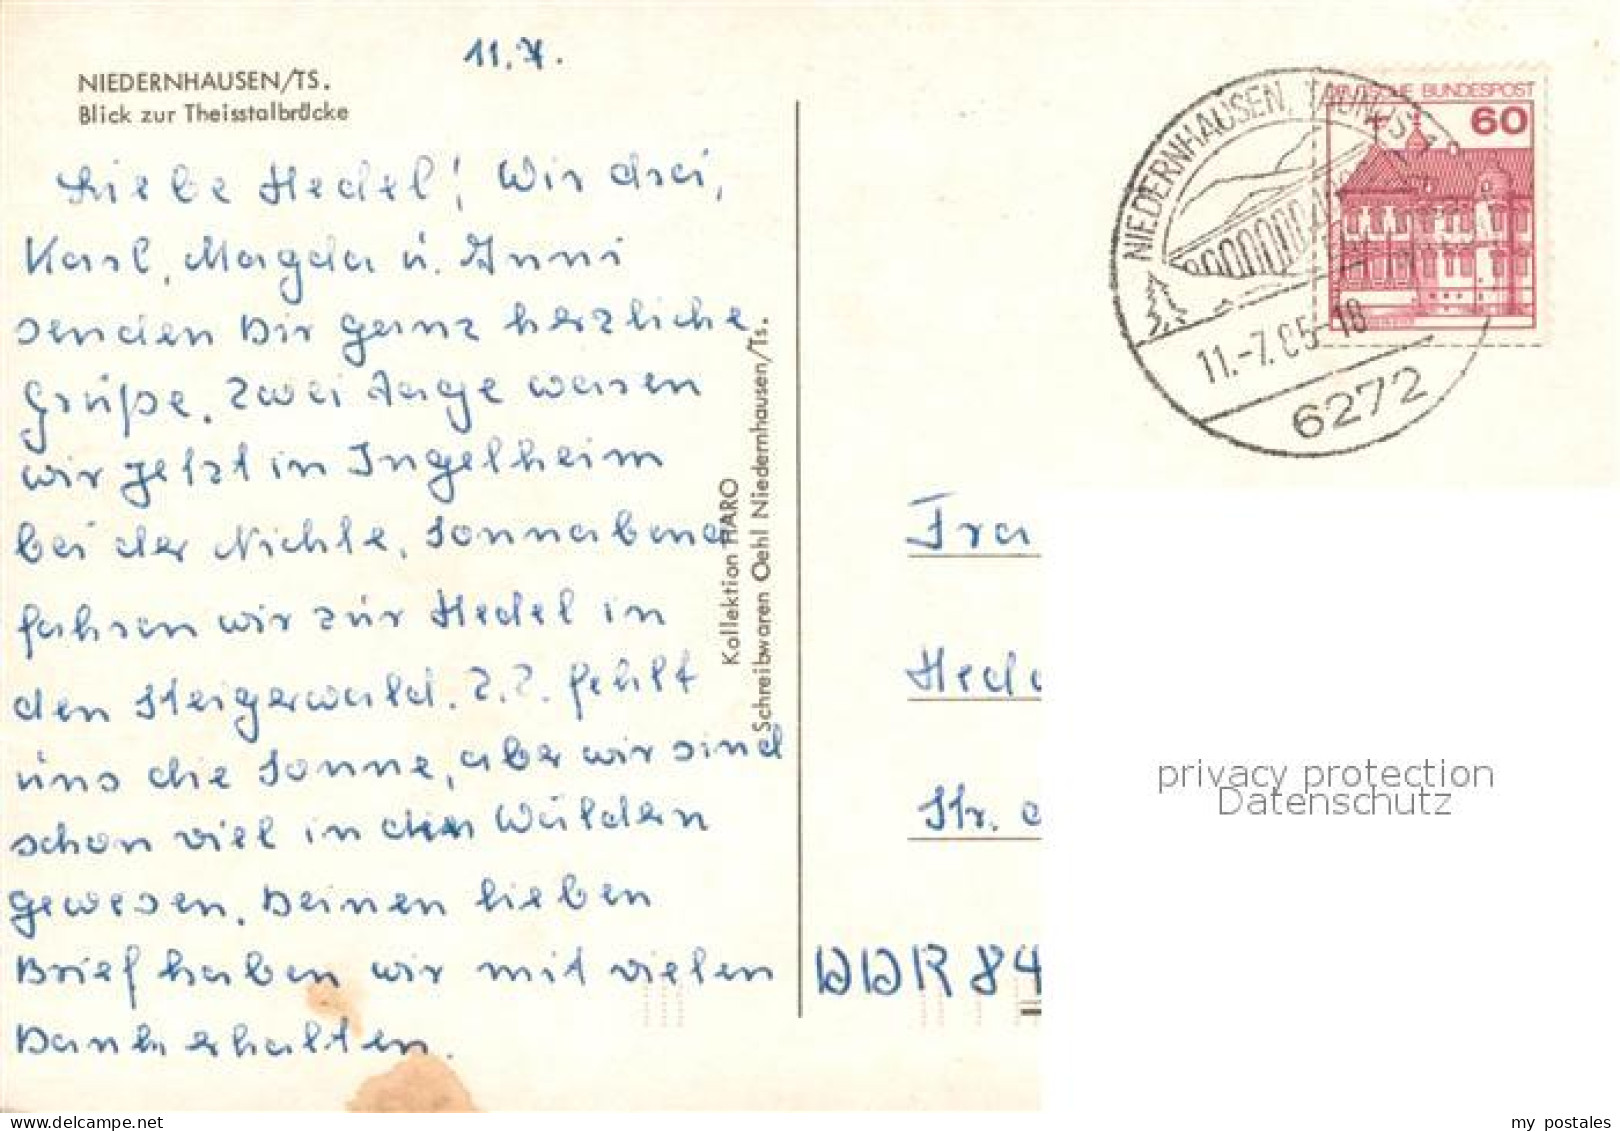 11. 7.
NIEDERNHAUSEN/TS.
Blick zur Theisstalbrücke
Liebe Hedel! Wir drei,
Karl, Magda u. Anni
senden Dir ganz herzliche
Grüße. Zwei Tage waren
wir jetzt in Ingelheim
bei der Nichte. Sonnabend
fahren wir zur Hedel in
den Steigerwald. Z. Z. fehlt
uns die Sonne, aber wir sind
schon viel in den Wäldern
gewesen. Deinen lieben
Brief haben wir mit vielen
Dank erhalten.
Kollektion HARO
Schreibwaren Oehl Niedernhausen/Ts.
DEUTSCHE BUNDESPOST
60
NIEDERNHAUSEN, TAUNUS 1
11.-7.85-18
6272
Fra
Hed
Str. d
DDR 84
privacy protection
Datenschutz
my postales